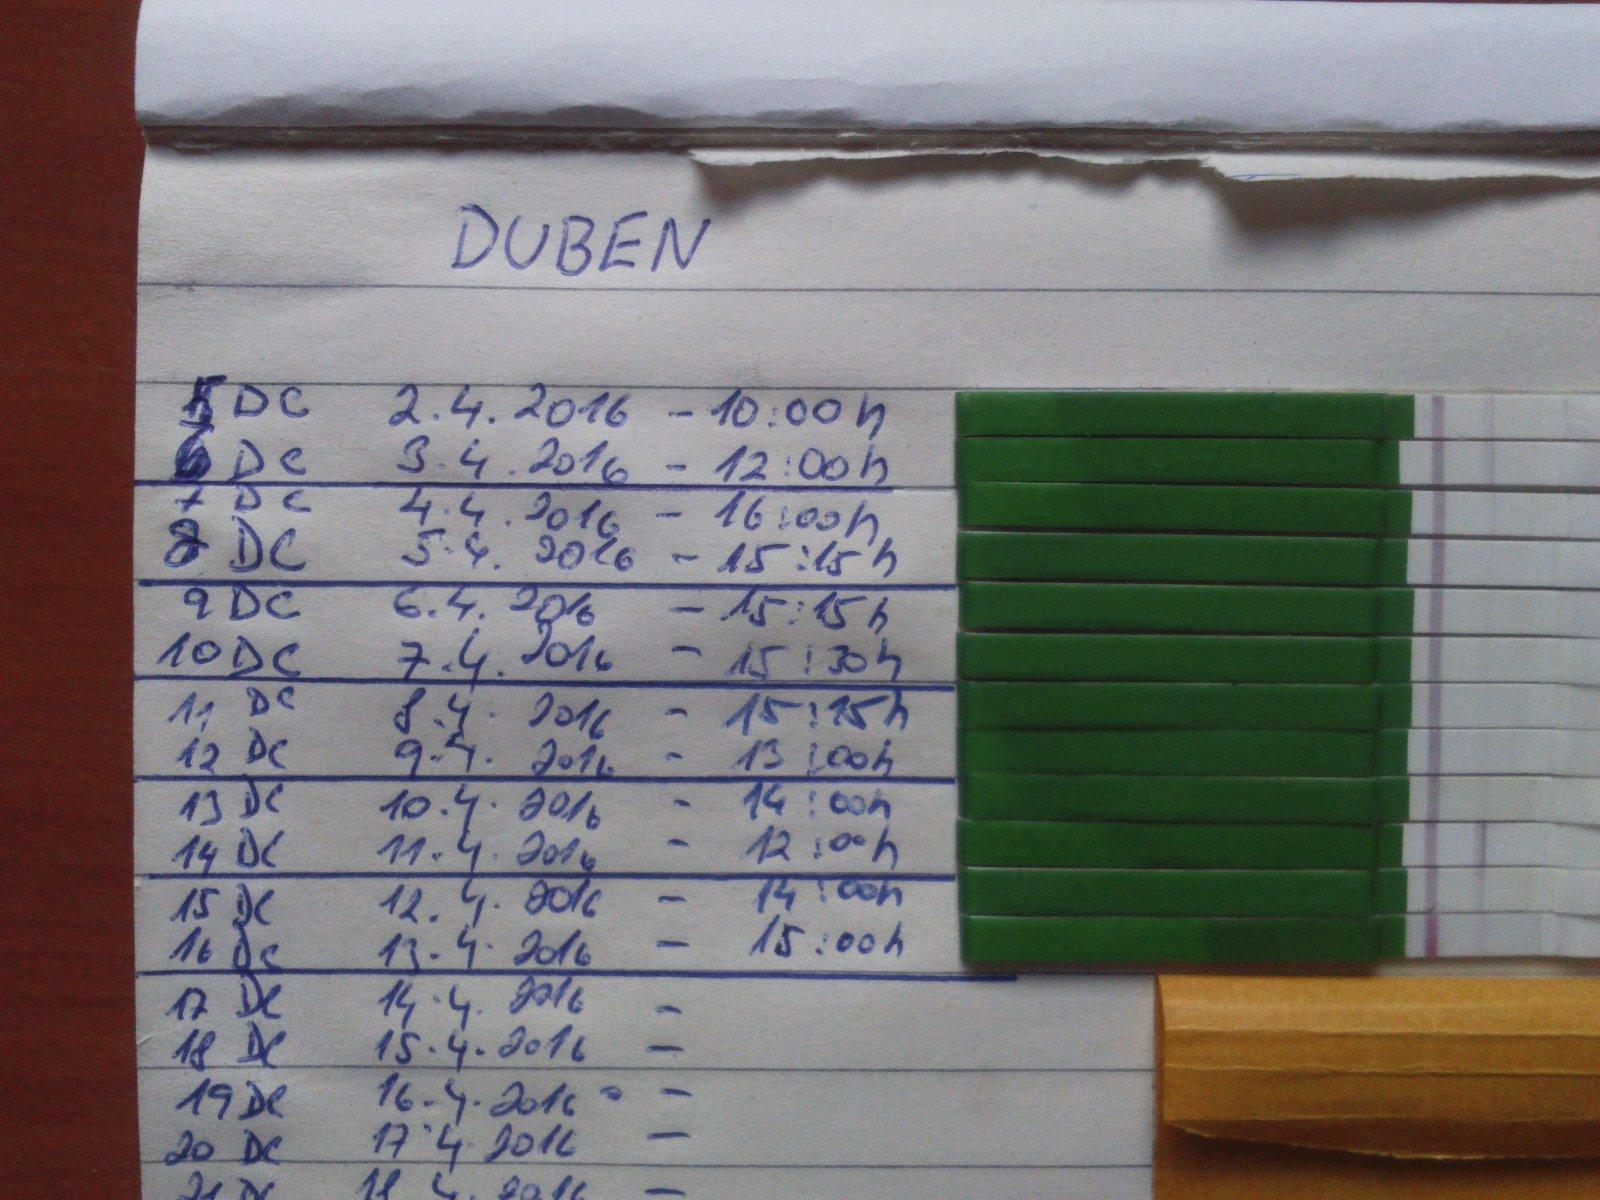 DUBEN
5 DC 2.4.2016 - 10:00h
6 DC 3.4.2016 - 12:00h
7 DC 4.4.2016 - 16:00h
8 DC 5.4.2016 - 15:15h
9 DC 6.4.2016 - 15:15h
10 DC 7.4.2016 - 15:30h
11 DC 8.4.2016 - 15:15h
12 DC 9.4.2016 - 13:00h
13 DC 10.4.2016 - 14:00h
14 DC 11.4.2016 - 12:00h
15 DC 12.4.2016 - 14:00h
16 DC 13.4.2016 - 15:00h
17 DC 14.4.2016 -
18 DC 15.4.2016 -
19 DC 16.4.2016 -
20 DC 17.4.2016 -
21 DC 18.4.2016 -